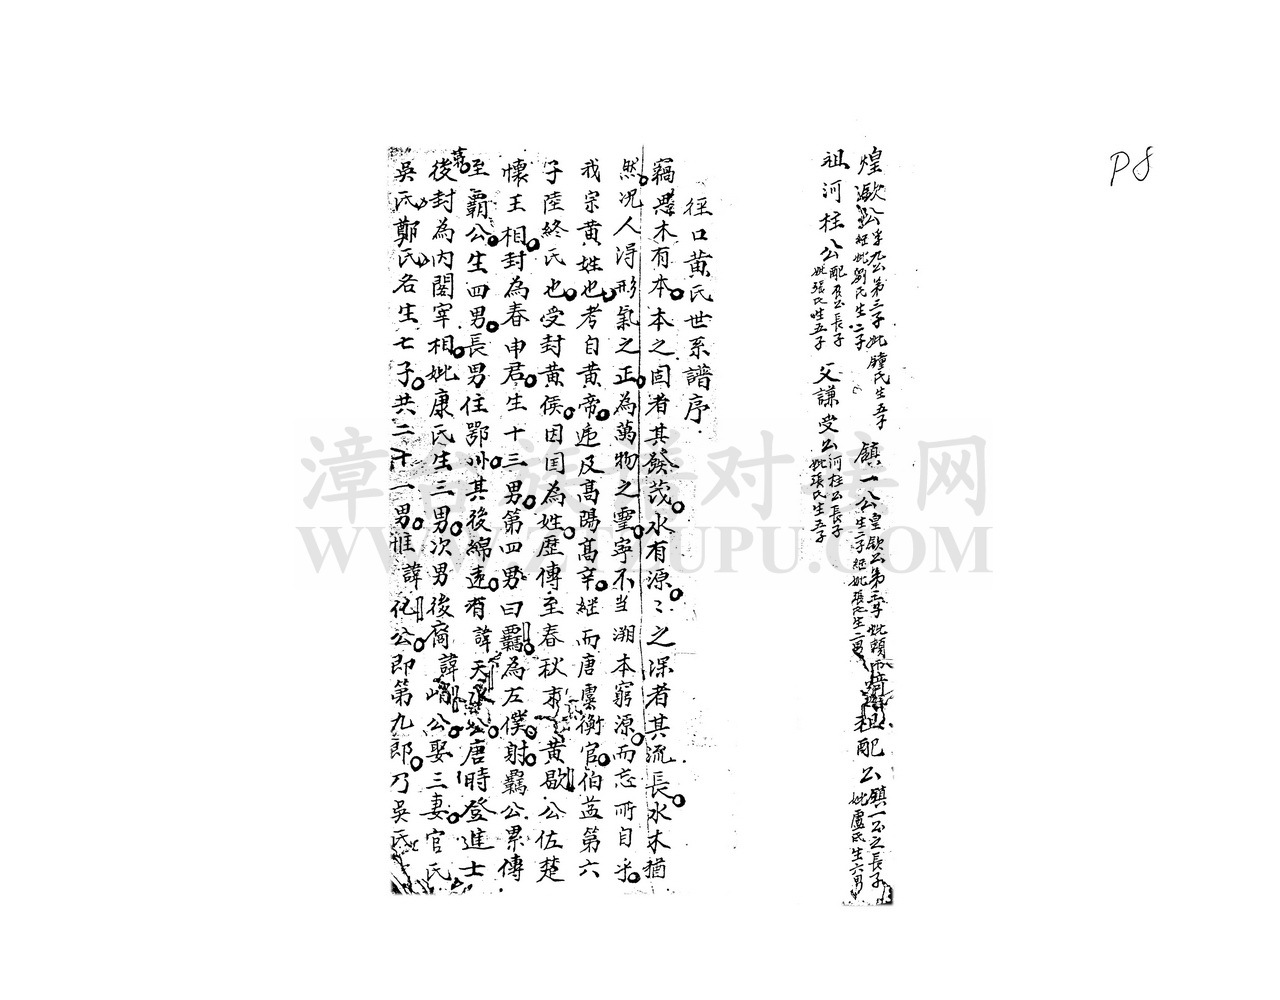 P8
煌歐公孚九公第三子妣鍾氏生五子經妣劉氏生二子 鎮一公皇歐公第三子妣賴氏生二子經妣張氏生二男
祖河柱公妣張氏生五子 父謙受公河柱公長子妣張氏生五子
祖配公鎮一公之長子妣盧氏生六男
徑口黃氏世系譜序
竊異木有本本之固者其發茂水有源〻之深者其流長水木猶
然况人得形氣之正為萬物之靈寧不当溯本窮源而忘所自乎
我宗黃姓也考自黃帝迄及髙陽髙辛継而唐虞衡官伯益第六
子陸終氏也受封黄侯因国為姓歷傳至春秋末黄歇公佐楚
懷王相封為春申君生十三男第四男曰覊為左僕射覊公累傳
至霸公生四男長男住鄂州其後綿遠有諱天水公唐時登進士
後封為内閣宰相妣康氏生三男次男後裔諱峭公娶三妻官氏
吳氏鄭氏各生七子共二十一男惟諱化公即第九郎乃吳氏
漳台族谱对接网
WWW.ZTZUPU.COM